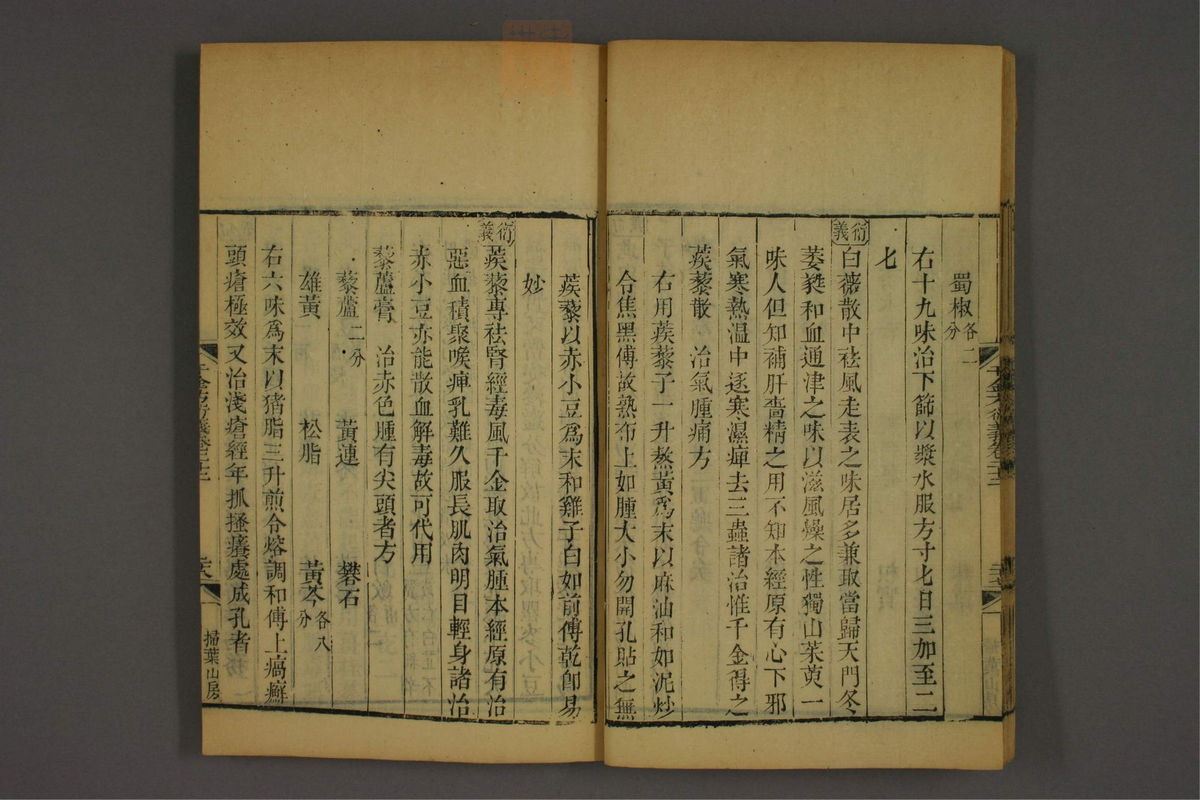 蜀椒各二分
右十九味治下篩以漿水服方寸匕日三加至二
匕
衍義 白薇散中祛風走表之味居多兼取當歸天門冬
萎蕤和血通津之味以滋風燥之性獨山茱萸一
味人但知補肝嗇精之用不知本經原有心下邪
氣寒熱溫中逐寒濕痺去三蟲諸治惟千金得之
蒺藜散 治氣腫痛方
右用蒺藜子一升熬黃爲末以麻油和如泥炒
令焦黑傅故熟布上如腫大小勿開孔貼之無
蒺藜以赤小豆爲末和雞子白如前傅乾卽易
妙
衍義 蒺藜專祛腎經毒風千金取治氣腫本經原有治
惡血積聚喉痺乳難久服長肌肉明目輕身諸治
赤小豆亦能散血解毒故可代用
藜蘆膏 治赤色腫有尖頭者方
藜蘆二分 黃連 礬石
雄黃 松脂 黃芩各八分
右六味爲末以猪脂三升煎令熔調和傅上瘑癬
頭瘡極效又治淺瘡經年抓搔癢處成孔者
掃葉山房